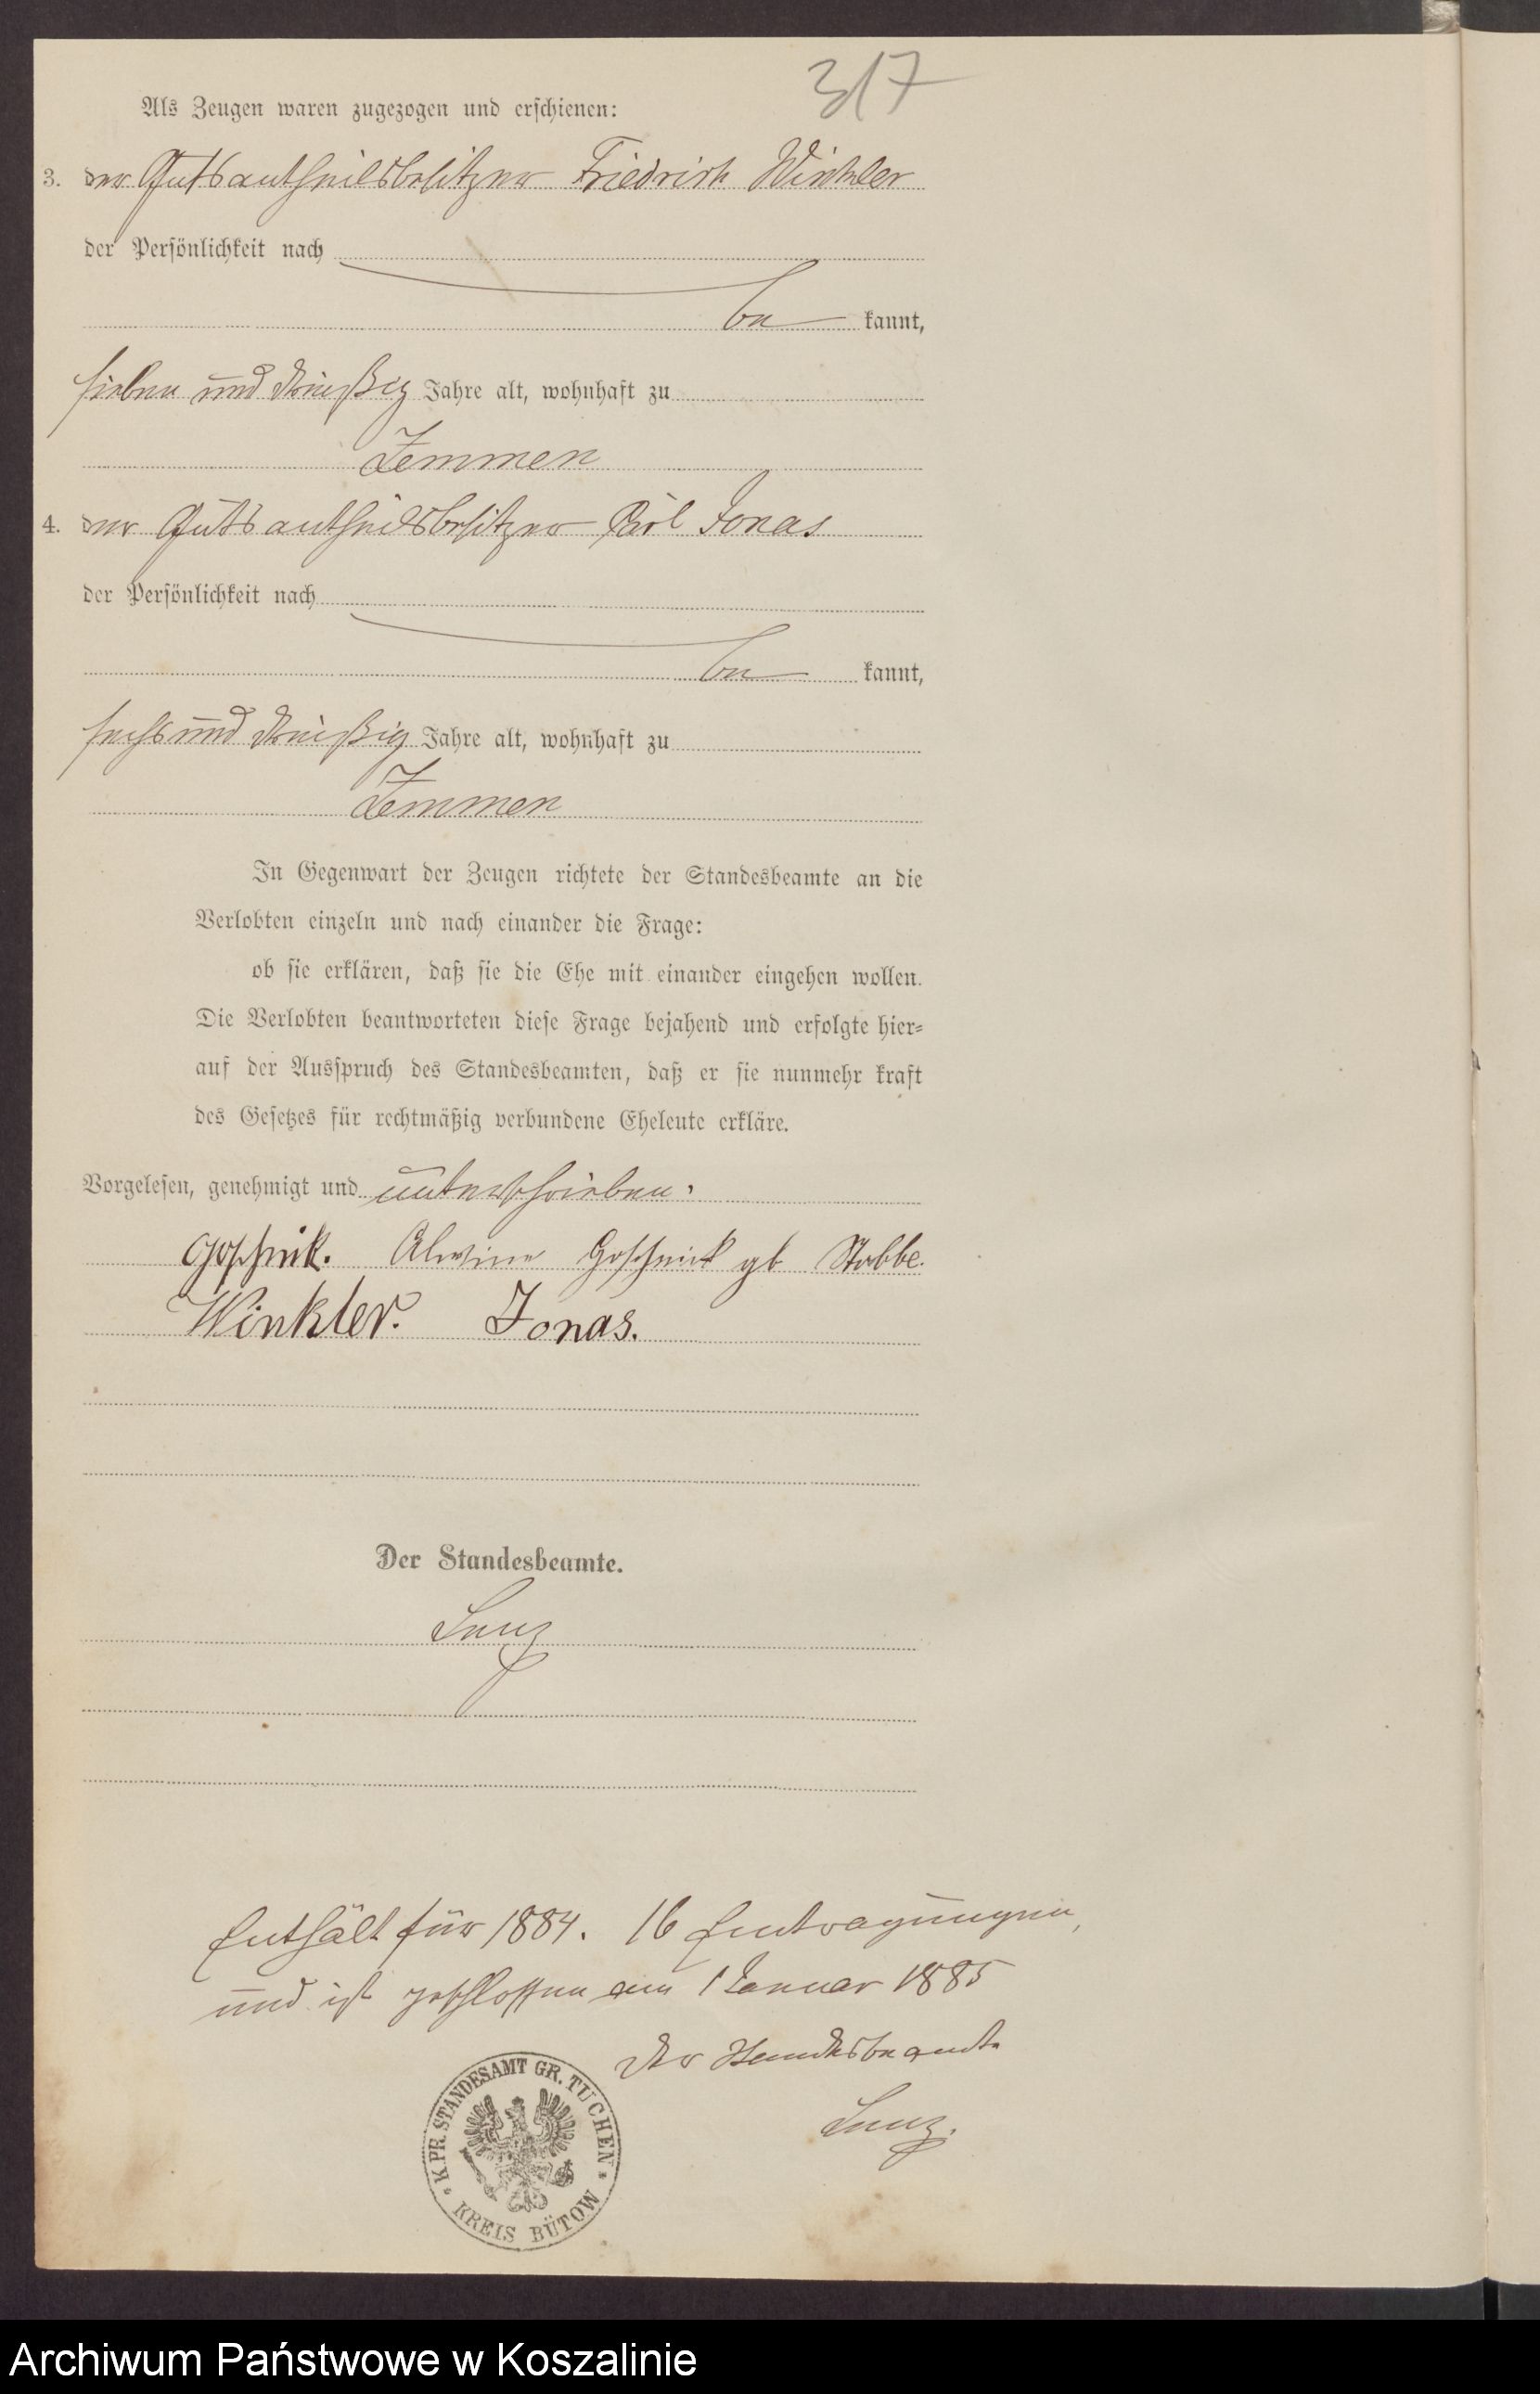 317
Als Zeugen waren zugezogen und erschienen:
3. der Gutsantheilsbesitzer Friedrich Winkler
der Persönlichkeit nach
be kannt,
sieben und dreißig Jahre alt, wohnhaft zu
Zemmen
4. der Gutsantheilsbesitzer Jonas
der Persönlichkeit nach
be kannt,
sechs und dreißig Jahre alt, wohnhaft zu
Zemmen
In Gegenwart der Zeugen richtete der Standesbeamte an die
Verlobten einzeln und nach einander die Frage:
ob sie erklären, daß sie die Ehe mit einander eingehen wollen.
Die Verlobten beantworteten diese Frage bejahend und erfolgte hier=
auf der Ausspruch des Standesbeamten, daß er sie nunmehr kraft
des Gesetzes für rechtmäßig verbundene Eheleute erkläre.
Vorgelesen, genehmigt und unterschrieben.
Goschnik. Alwine Goschnick gb Stobbe.
Winkler. Jonas.
Der Standesbeamte.
Lenz
Enthält für 1884. 16 Eintragungen,
und ist geschlossen am 1 Januar 1885
Der Standesbeamte
Lenz.
K. PR. STANDESAMT GR. TUCHEN
KREIS BÜTOW
Archiwum Państwowe w Koszalinie